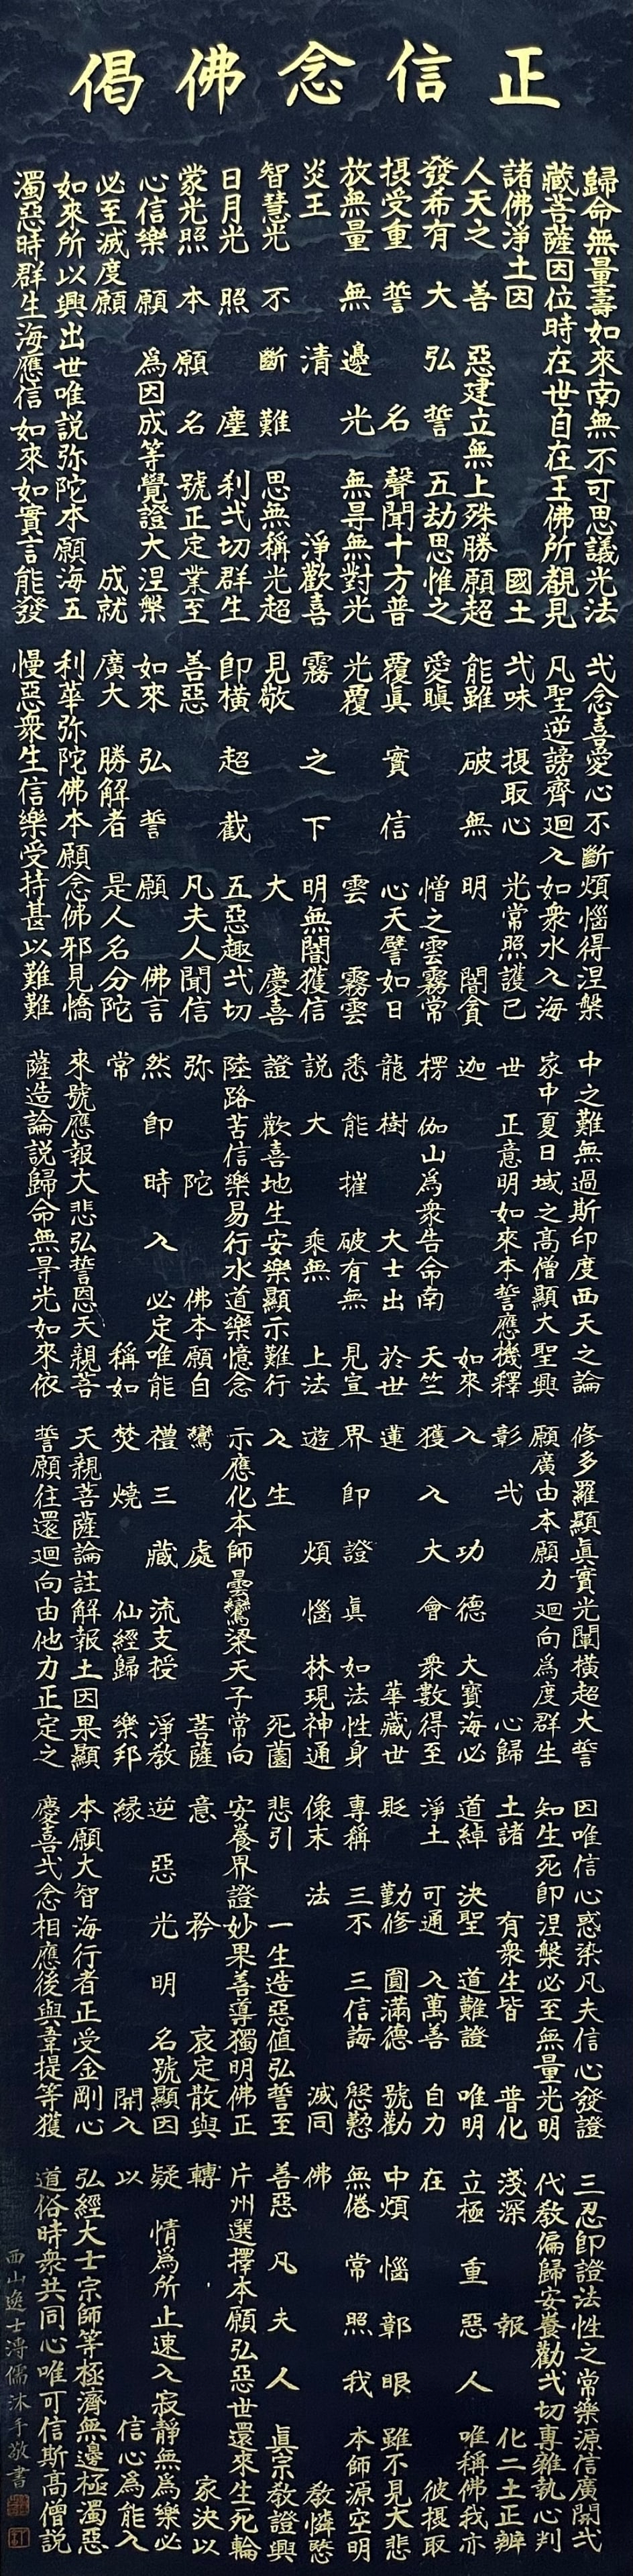 正信念佛偈
歸命無量壽如來南無不可思議光法
藏菩薩因位時在世自在王佛所覩見
諸佛淨土因國土
人天之善惡建立無上殊勝願超
發希有大弘誓五劫思惟之
摂受重誓名聲聞十方普
放無量無邊光無㝵無對光
炎王清淨歡喜
智慧光不斷難思無稱光超
日月光照塵刹弌切群生
蒙光照本願名號正定業至
心信樂願爲因成等覺證大涅槃
必至滅度願成就
如來所以興出世唯説弥陀本願海五
濁惡時群生海應信如來如實言能發
弌念喜愛心不斷煩惱得涅槃
凡聖逆謗齊廻入如衆水入海
弌味摂取心光常照護已
能雖破無明闇貪
愛瞋憎之雲霧常
覆眞實信心天譬如日
光覆雲霧雲
霧之下明無闇獲信
見敬大慶喜
即橫超截五惡趣弌切
善惡凡夫人聞信
如來弘誓願佛言
廣大勝解者是人名分陀
利華弥陀佛本願念佛邪見憍
慢惡衆生信樂受持甚以難難
中之難無過斯印度西天之論
家中夏日域之高僧顯大聖興
世正意明如來本誓應機釋
迦如來
楞伽山爲衆告命南天竺
龍樹大士出於世
悉能摧破有無見宣
説大乘無上法
證歡喜地生安樂顯示難行
陸路苦信樂易行水道樂憶念
弥陀佛本願自
然即時入必定唯能
常稱如
來號應報大悲弘誓恩天親菩
薩造論説歸命無㝵光如來依
修多羅顯眞實光闡橫超大誓
願廣由本願力廻向爲度群生
彰弌心歸
入功德大寶海必
獲入大會衆數得至
蓮華藏世
界即證眞如法性身
遊煩惱林現神通
入生死薗
示應化本師曇鸞梁天子常向
鸞處菩薩
禮三藏流支授淨教
焚燒仙經歸樂邦
天親菩薩論註解報土因果顯
誓願往還廻向由他力正定之
因唯信心惑染凡夫信心發證
知生死即涅槃必至無量光明
土諸有衆生皆普化
道綽決聖道難證唯明
淨土可通入萬善自力
貶勤修圓滿德號勸
專稱三不三信誨慇懃
像末法滅同
悲引一生造惡値弘誓至
安養界證妙果善導獨明佛正
意矜哀定散與
逆惡光明名號顯因
縁開入
本願大智海行者正受金剛心
慶喜弌念相應後與韋提等獲
三忍即證法性之常樂源信廣開弌
代教偏歸安養勸弌切專雜執心判
淺深報化二土正辨
立極重惡人唯稱佛我亦
在彼摂取
中煩惱鄣眼雖不見大悲
無倦常照我本師源空明
佛教憐愍
善惡凡夫人眞宗教證興
片州選擇本願弘惡世還來生死輪
轉家決以
疑情爲所止速入寂靜無爲樂必
以信心爲能入
弘經大士宗師等極濟無邊極濁惡
道俗時衆共同心唯可信斯高僧説
西山逸士溥儒沐手敬書